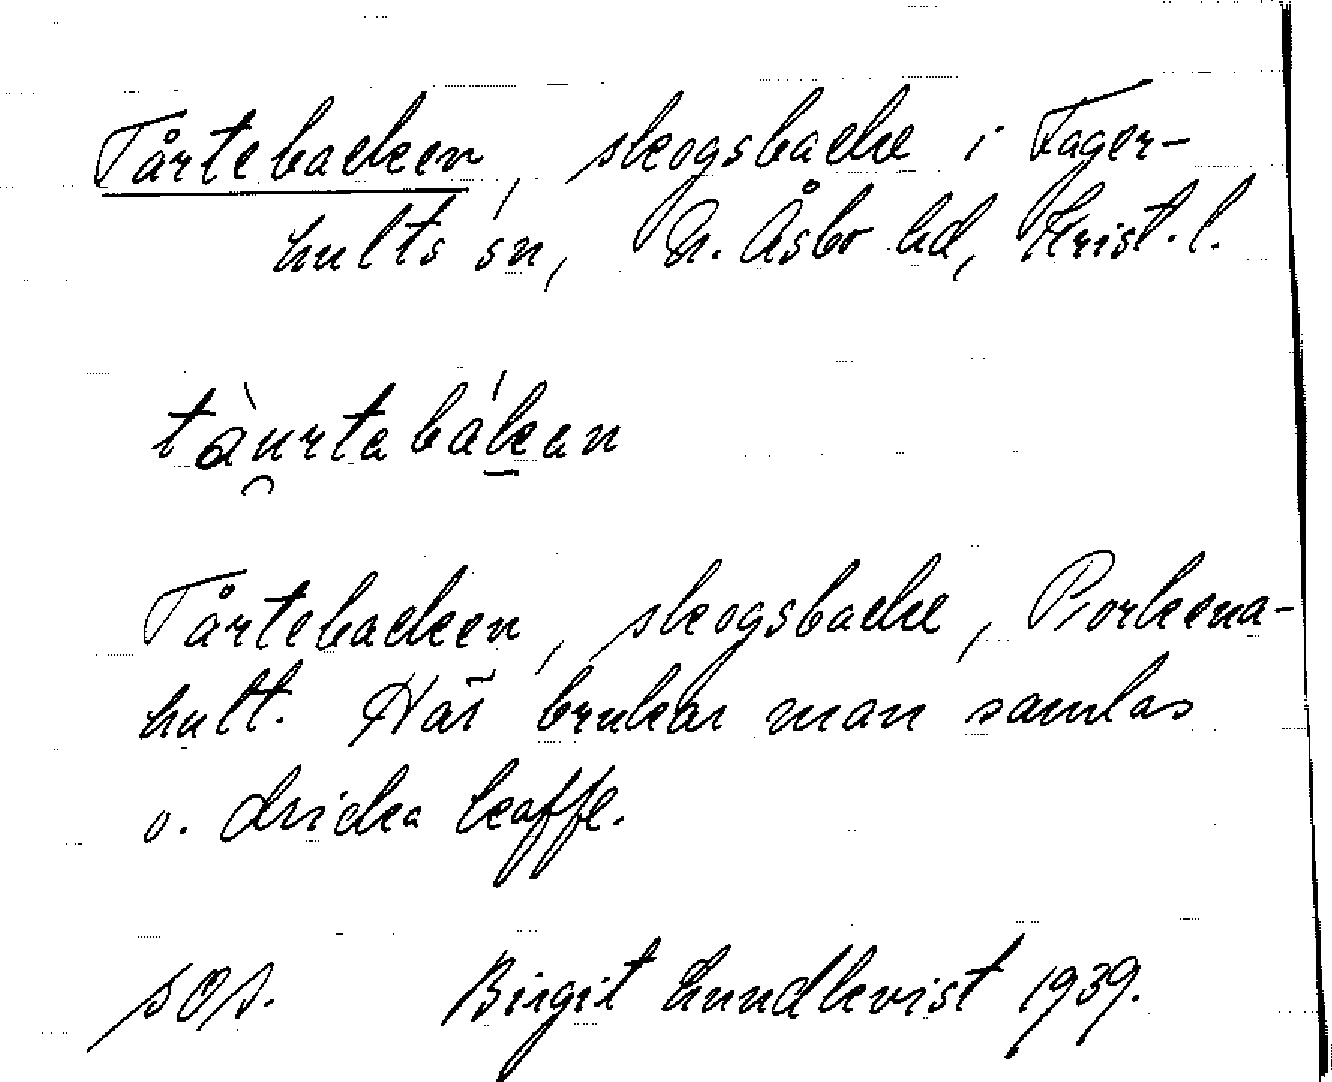 Tårtebacken, skogsbacke i Fager-
hults sn, N. Åsbo hd, Krist. l.
tàu̯rtabákan
Tårtebacken, skogsbacke, Porkena-
hult. Här brukar man samlas
o. dricka kaffe.
Birgit Lundkvist 1939.